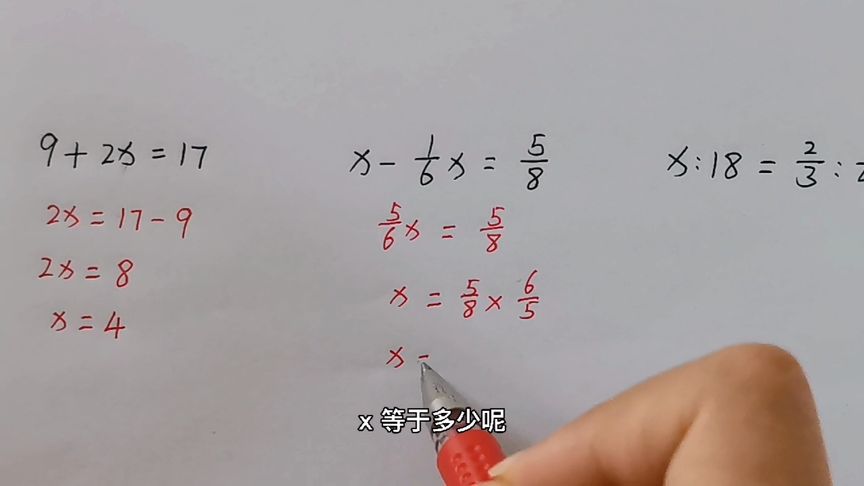 9 + 2x = 17
2x = 17 - 9
2x = 8
x = 4
x - 1/6 x = 5/8
5/6 x = 5/8
x = 5/8 × 6/5
x -
x : 18 = 2/3 :
x 等于多少呢